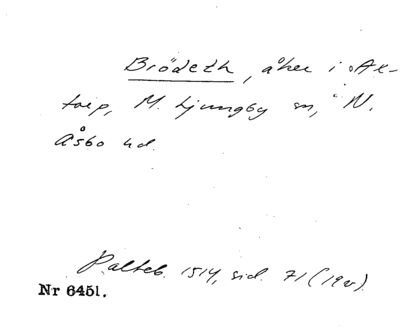 Brödeth, åker i Ax-
torp, M. Ljungby sn, N.
Åsbo hd.
Palteb. 1514, sid. 71 (
Nr 6451.